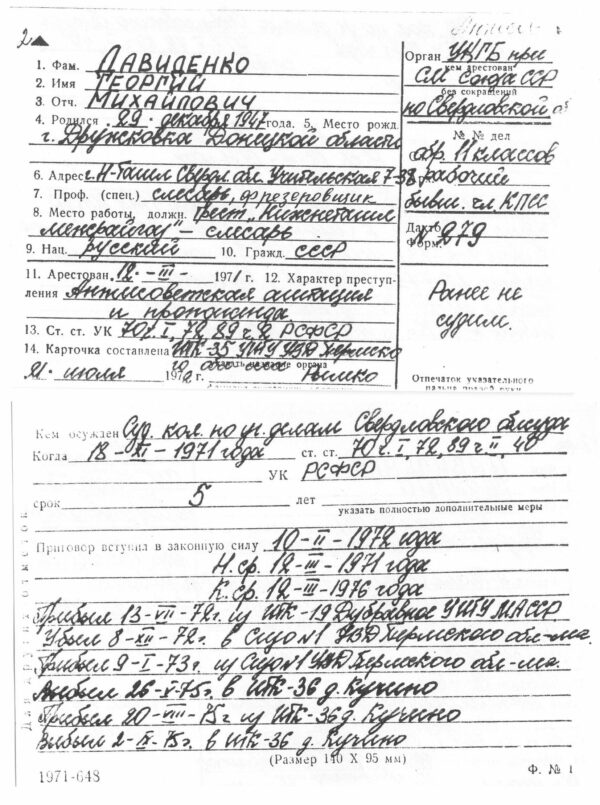 2
1. Фам. ДАВИДЕНКО
2. Имя ГЕОРГИЙ
3. Отч. МИХАЙЛОВИЧ
4. Родился 29. декабря 1947 года. 5. Место рожд.
г. Дружковка Донецкой области
6. Адрес г. Н-Тагил Свердл. обл. Учительская 7-38
7. Проф. (спец.) слесарь, фрезеровщик
8. Место работы, должн. трест "Нижнетагил
" – слесарь
9. Нац. русский 10. Гражд. СССР
11. Арестован 12. -III- 1971 г. 12. Характер преступ-
ления Антисоветская агитация
и пропаганда
13. Ст. ст. УК 70 ч. I, 72, 89 ч. 2 РСФСР
14. Карточка составлена ИТК-35 УИТУ УВД Пермско
указать название органа
21. июля 1972 г.
Орган УКГБ при
кем арестован
СМ Союза ССР
без сокращений
по Свердловской об
№ № дел
обр. 11 классов
рабочий
бывш. чл. КПСС
Дакто
форм. 279
Ранее не
судим.
Отпечаток указательного
пальца правой руки
Кем осужден Суд. кол. по уг. делам Свердловского облсуда
Когда 18 -XI- 1971 года ст. ст. 70 ч. I, 72, 89 ч. II, 40
УК РСФСР
срок 5 лет
указать полностью дополнительные меры
Приговор вступил в законную силу 10-II-1972 года
Н. ср. 12-III-1971 года
К. ср. 12-III-1976 года
Прибыл 13-VII-72г. из ИТК-19 Дубравное УИТУ МАССР
Убыл 8-XII-72г. в Сизо №1 УВД Пермского обл-ма.
Прибыл 9-I-73г. из Сизо №1 УВД Пермского обл-ма.
26-X-75г. в ИТК-36 д. Кучино
Прибыл 20-VIII-75г из ИТК-36 д. Кучино
Выбыл 2-IX-75г. в ИТК-36 д. Кучино
(Размер 140 X 95 мм)
1971-648
Ф. № 1